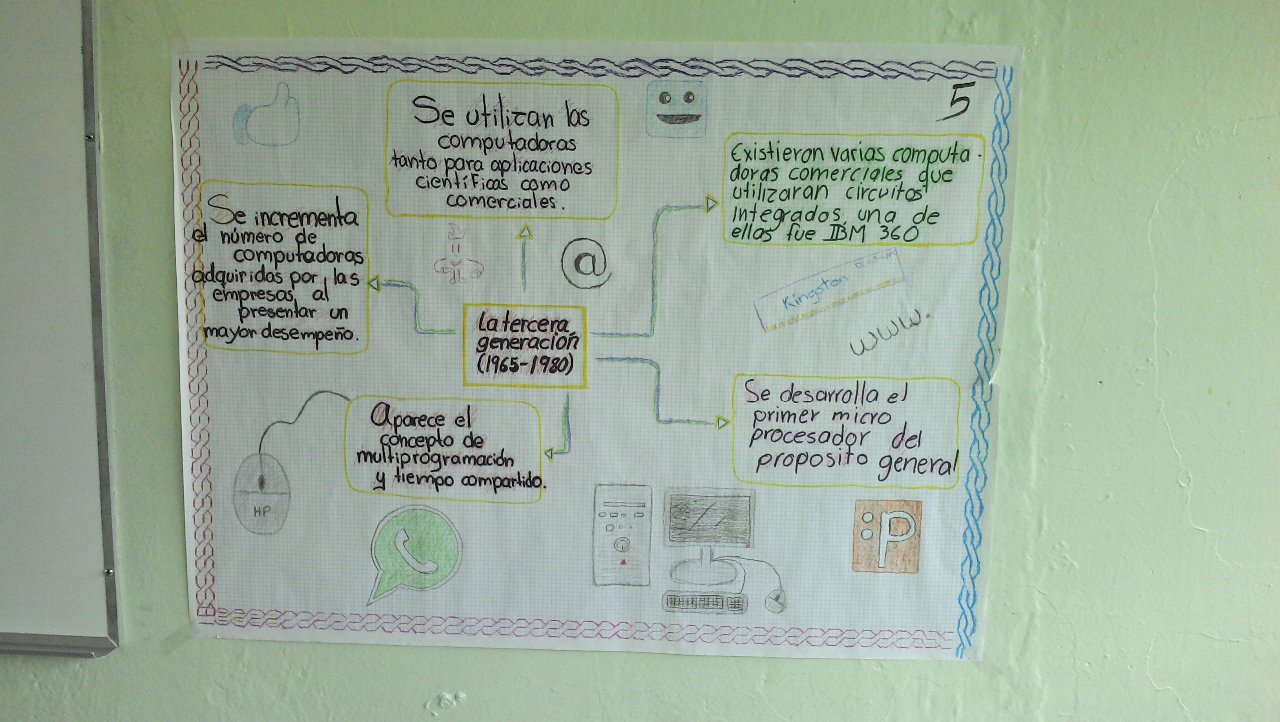 5
Se utilizan las
computadoras
tanto para aplicaciones
científicas como
comerciales.
Existieron varias computa-
doras comerciales que
utilizaran circuitos
integrados, una de
ellas fue IBM 360
Se incrementa
el número de
computadoras
adquiridas por las
empresas al
presentar un
mayor desempeño.
@
Kingston
www.
La tercera
generación
(1965-1980)
Se desarrolla el
primer micro
procesador del
proposito general
Aparece el
concepto de
multiprogramación
y tiempo compartido.
HP
:P